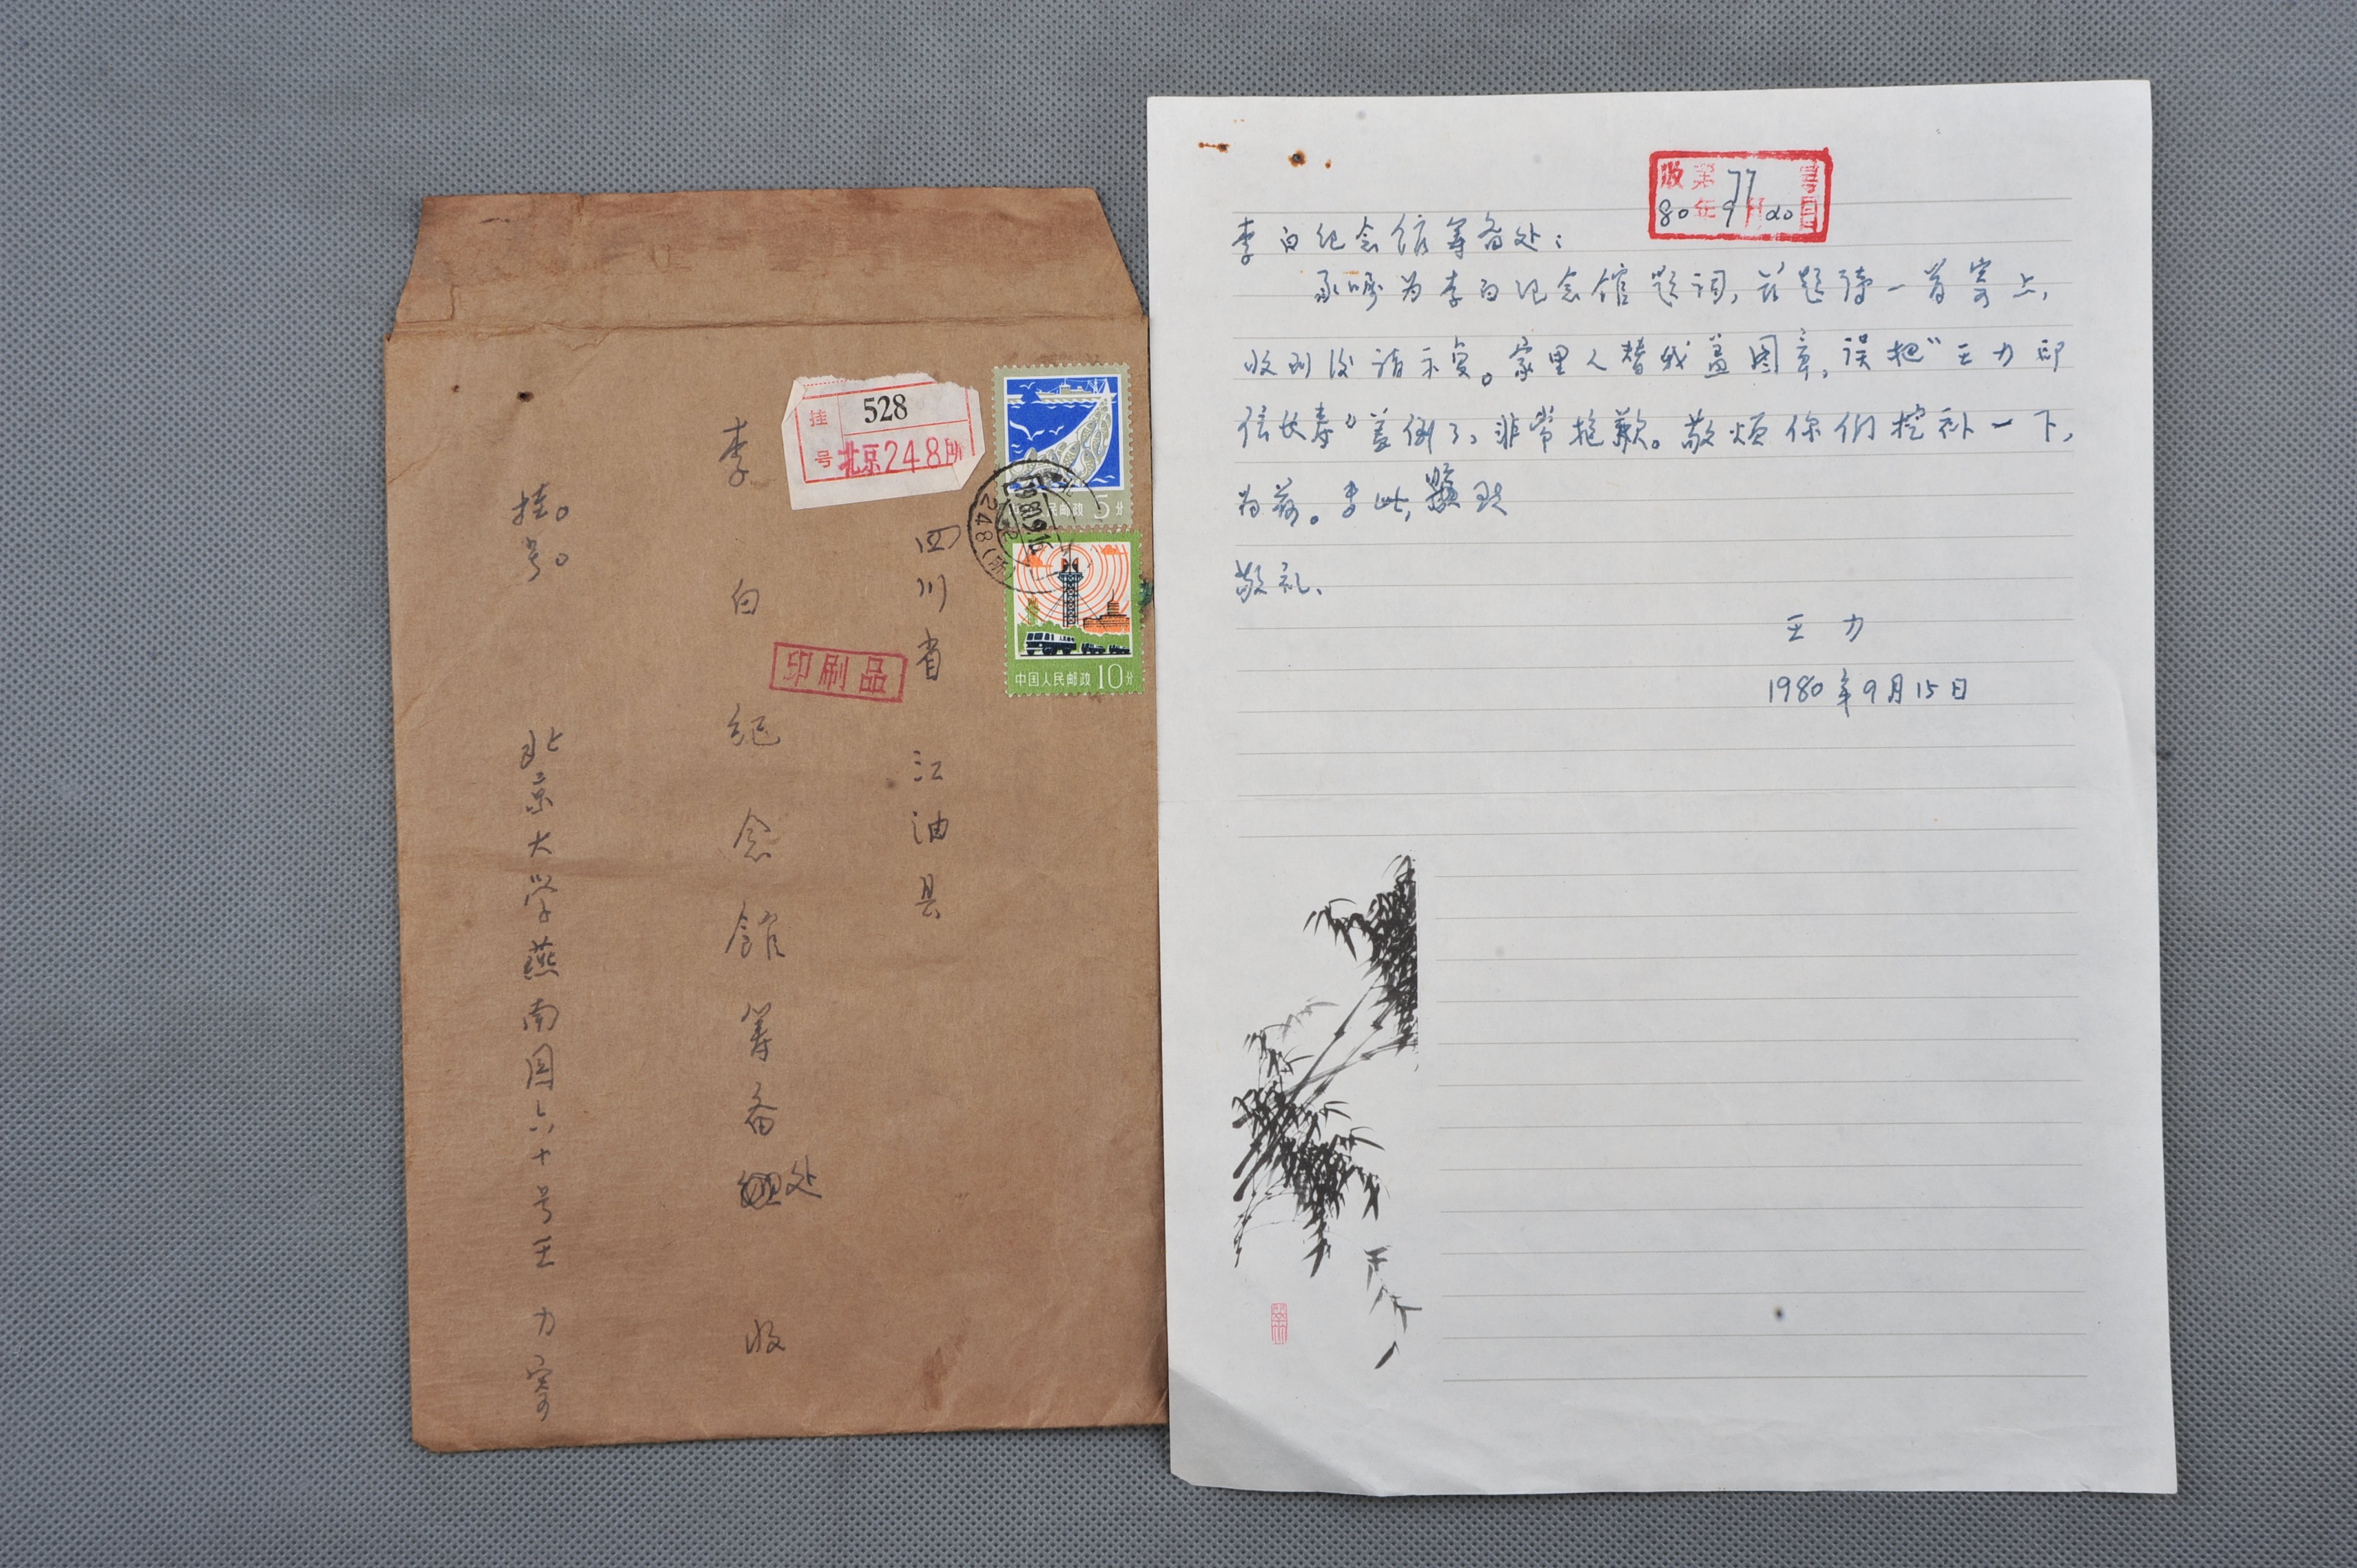 四川省 江油县
李白纪念馆筹备处 收
北京大学燕南园六十号王力寄
挂号
挂 528
号 北京248所
印刷品
中国人民邮政 10分
收 第 77 号
80年9月20日
李白纪念馆筹备处:
承嘱为李白纪念馆题词,兹题诗一首寄上,
收到后请示复。家里人替我盖图章,误把“王力印
信长寿”盖倒了,非常抱歉。敬烦你们挖补一下,
为荷。专此,顺致
敬礼、
王力
1980年9月15日